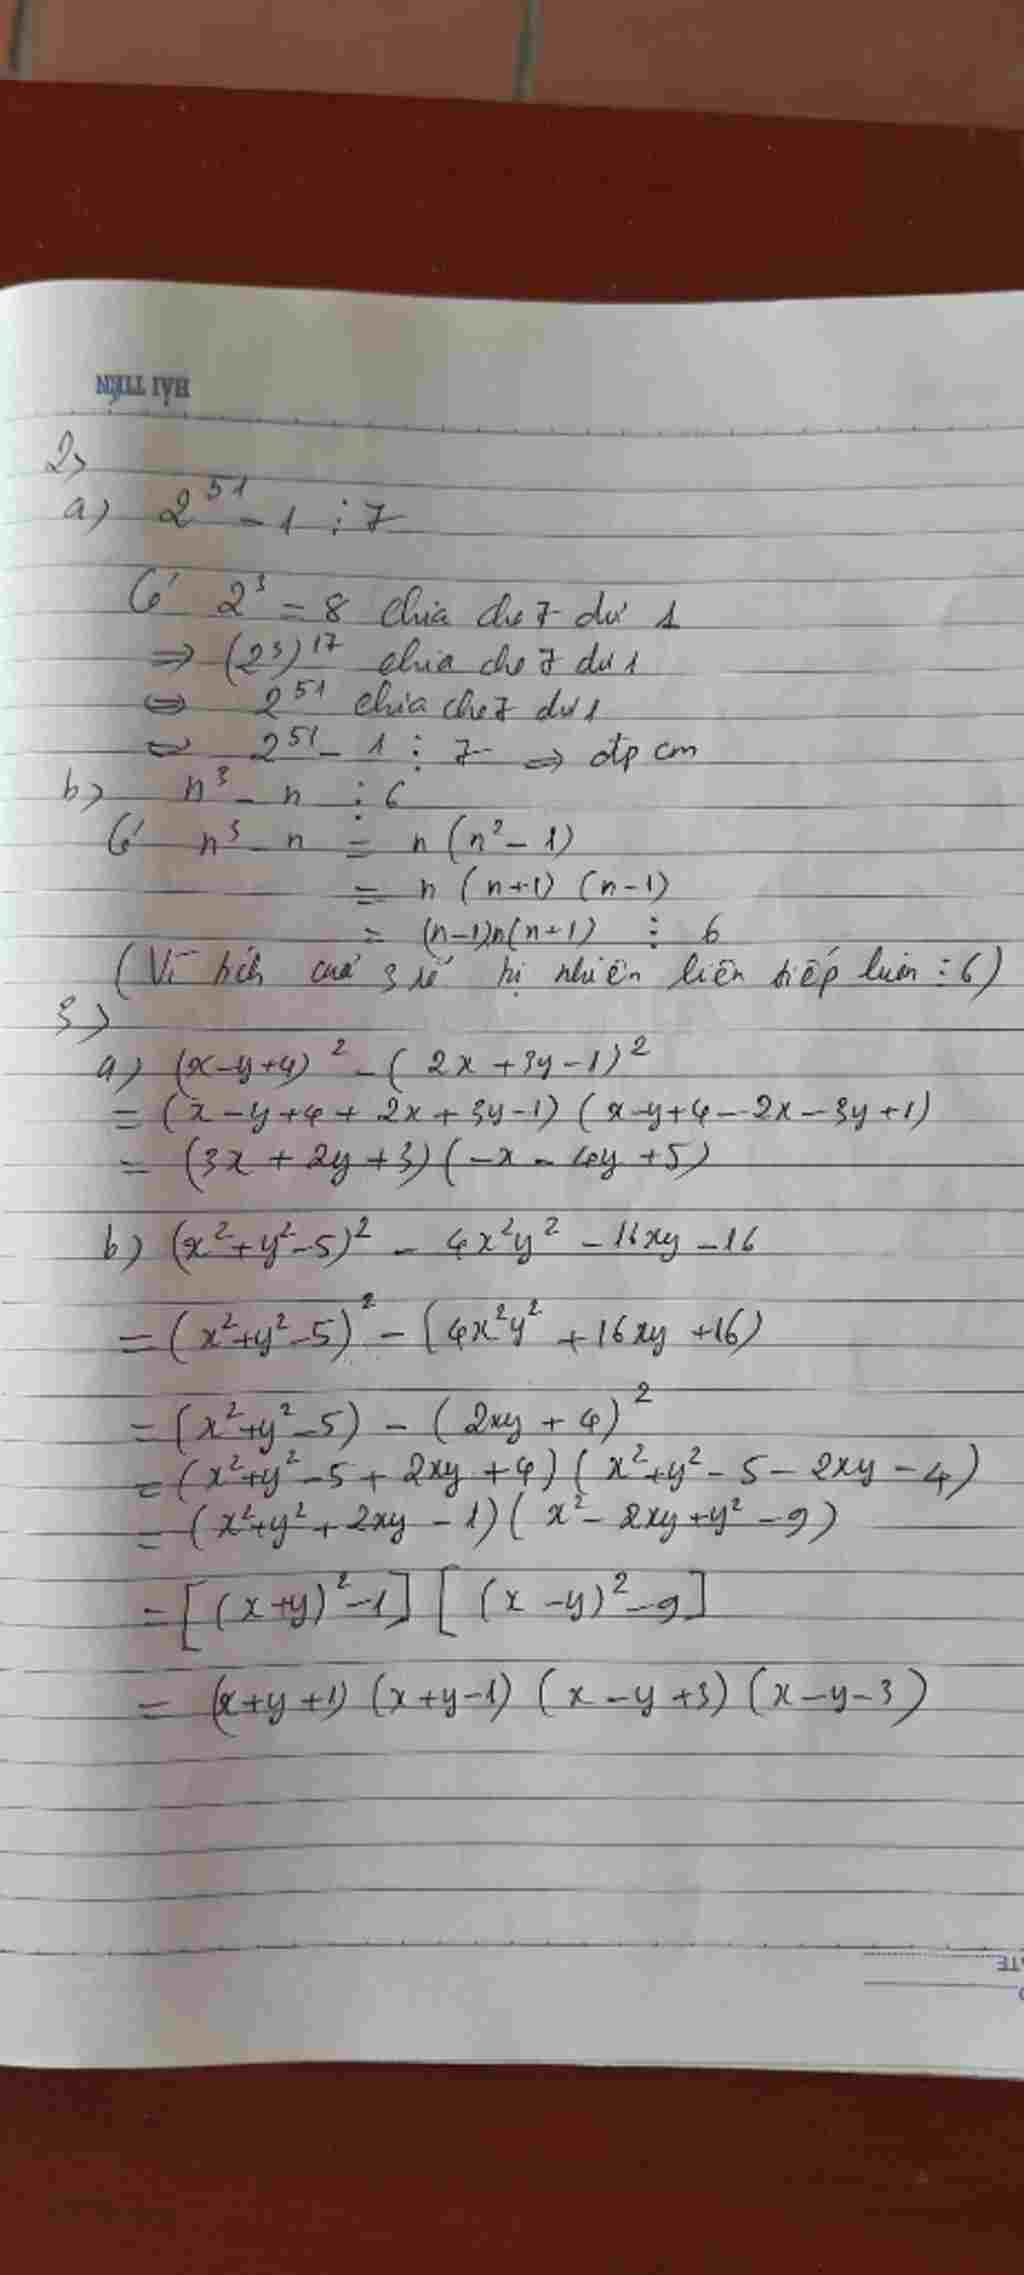 HẢI TIẾN
2>
a) 2^51 - 1 ⋮ 7
Có 2^3 = 8 chia cho 7 dư 1
=> (2^3)^17 chia cho 7 dư 1
<=> 2^51 chia cho 7 dư 1
<=> 2^51 - 1 ⋮ 7 => đpcm
b> n^3 - n ⋮ 6
Có n^3 - n = n (n^2 - 1)
= n (n+1) (n-1)
= (n-1)n(n+1) ⋮ 6
(Vì tích của 3 số tự nhiên liên tiếp luôn ⋮ 6)
3>
a) (x-y+4)^2 - (2x+3y-1)^2
= (x-y+4+2x+3y-1) (x-y+4-2x-3y+1)
= (3x+2y+3)(-x-4y+5)
b) (x^2+y^2-5)^2 - 4x^2y^2 - 16xy - 16
= (x^2+y^2-5)^2 - (4x^2y^2 + 16xy + 16)
= (x^2+y^2-5) - (2xy+4)^2
= (x^2+y^2-5+2xy+4) (x^2+y^2-5-2xy-4)
= (x^2+y^2+2xy-1) (x^2-2xy+y^2-9)
= [(x+y)^2-1] [(x-y)^2-9]
= (x+y+1) (x+y-1) (x-y+3) (x-y-3)